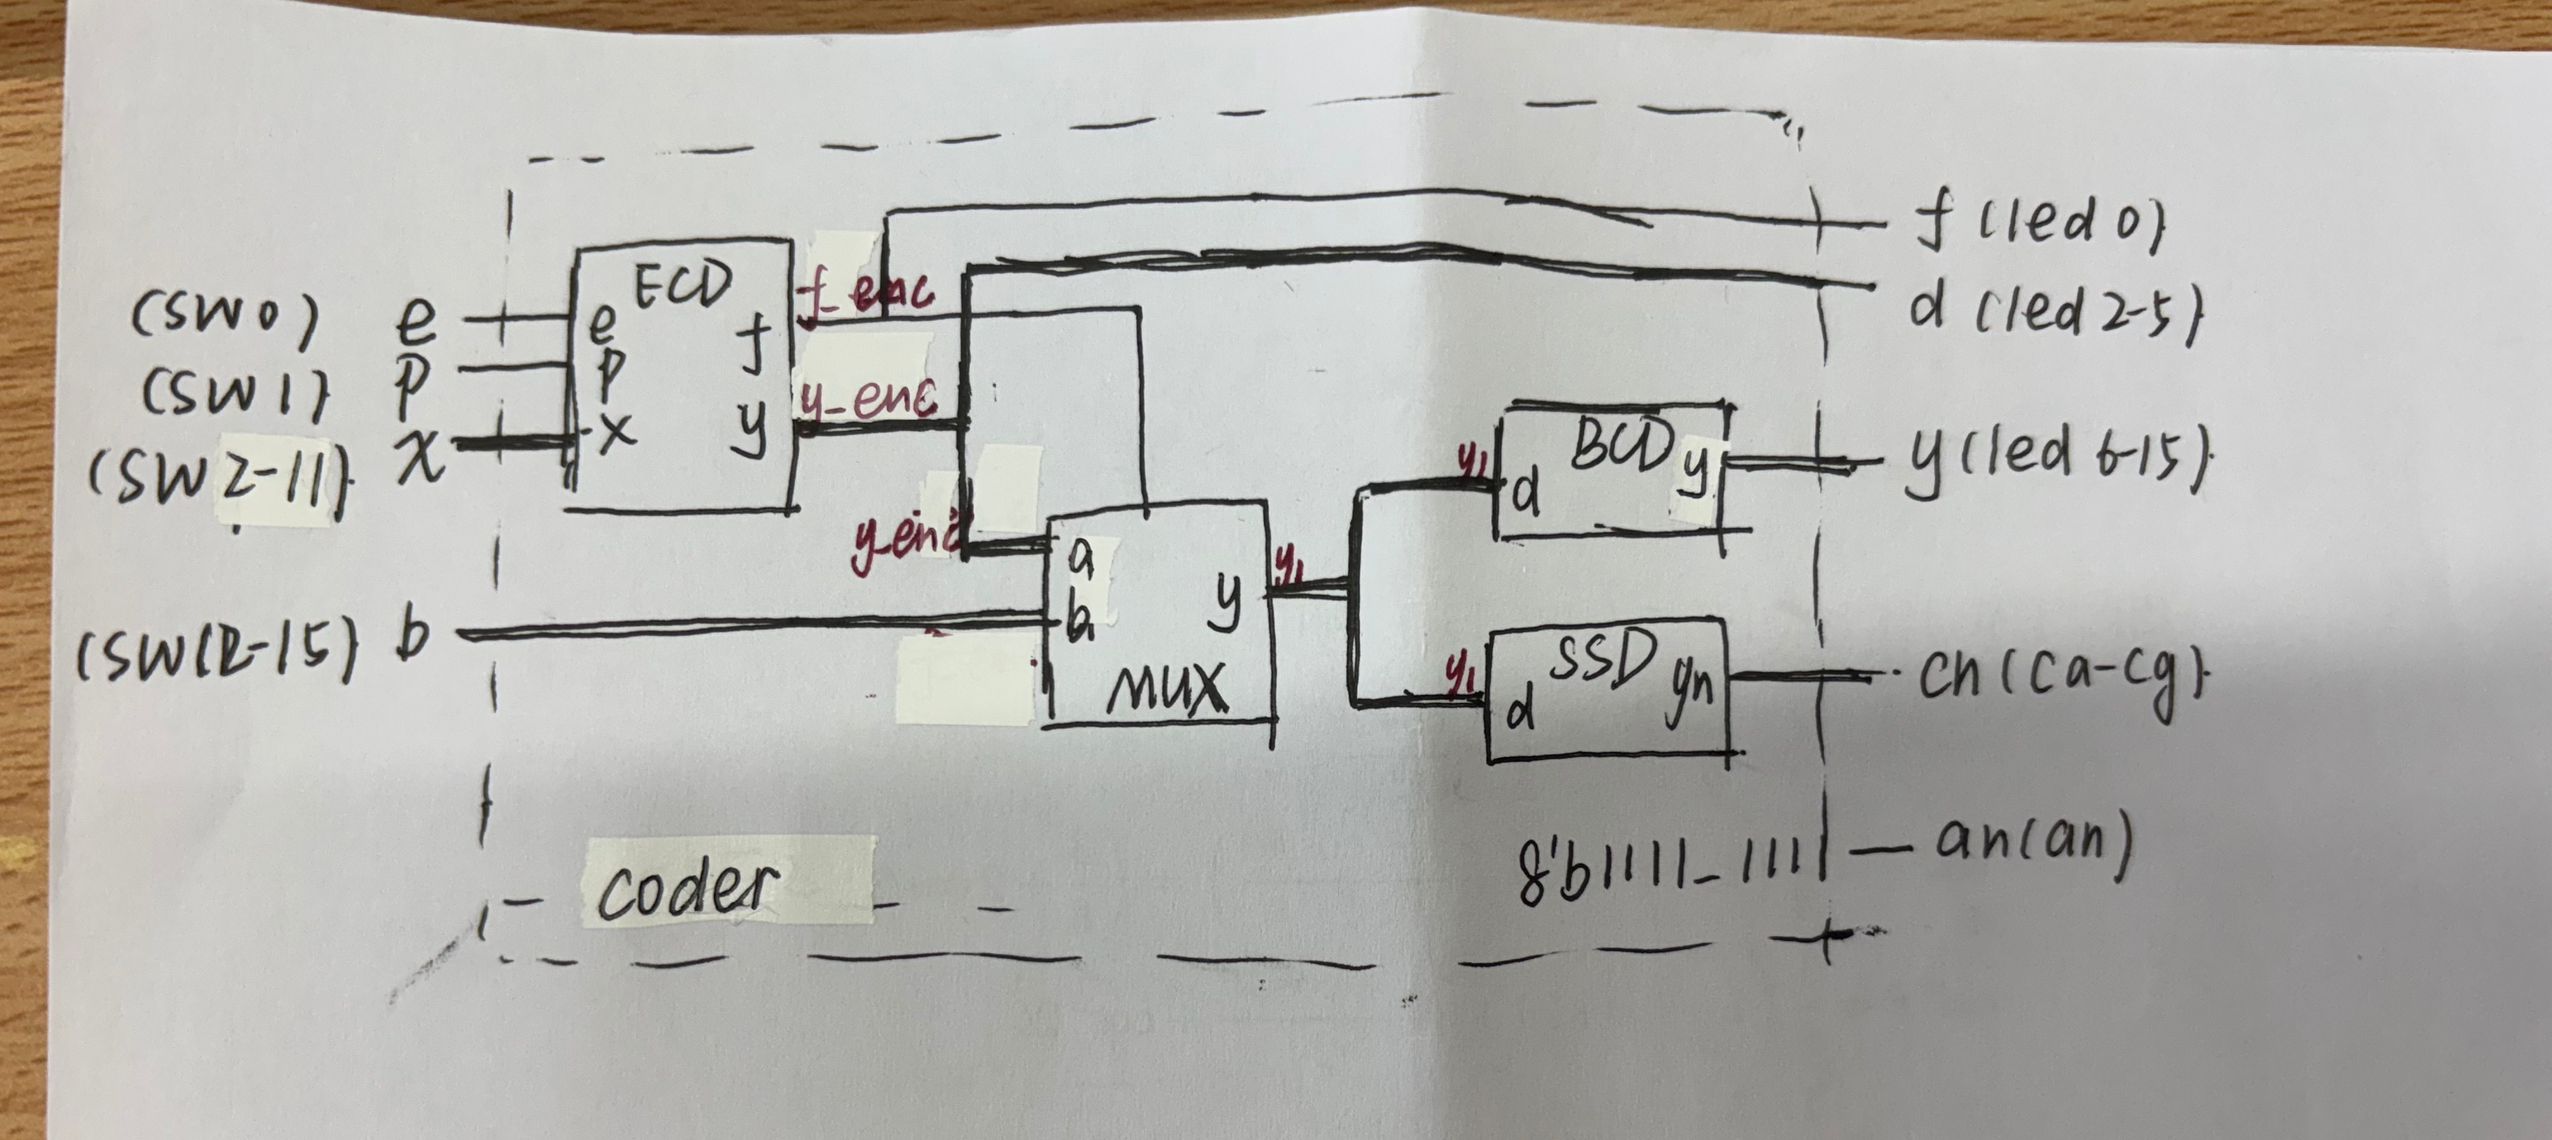 (SW0) e
(SW1) p
(SW2-11) x
(SW12-15) b
ECD
e
p
x
f
y
f_enc
y_enc
y_enc
a
b
y
MUX
y1
y1
d
BCD
y
y1
d
SSD
yn
f (led 0)
d (led 2-5)
y (led 6-15)
cn (ca-cg)
8'b1111_1111
an(an)
coder